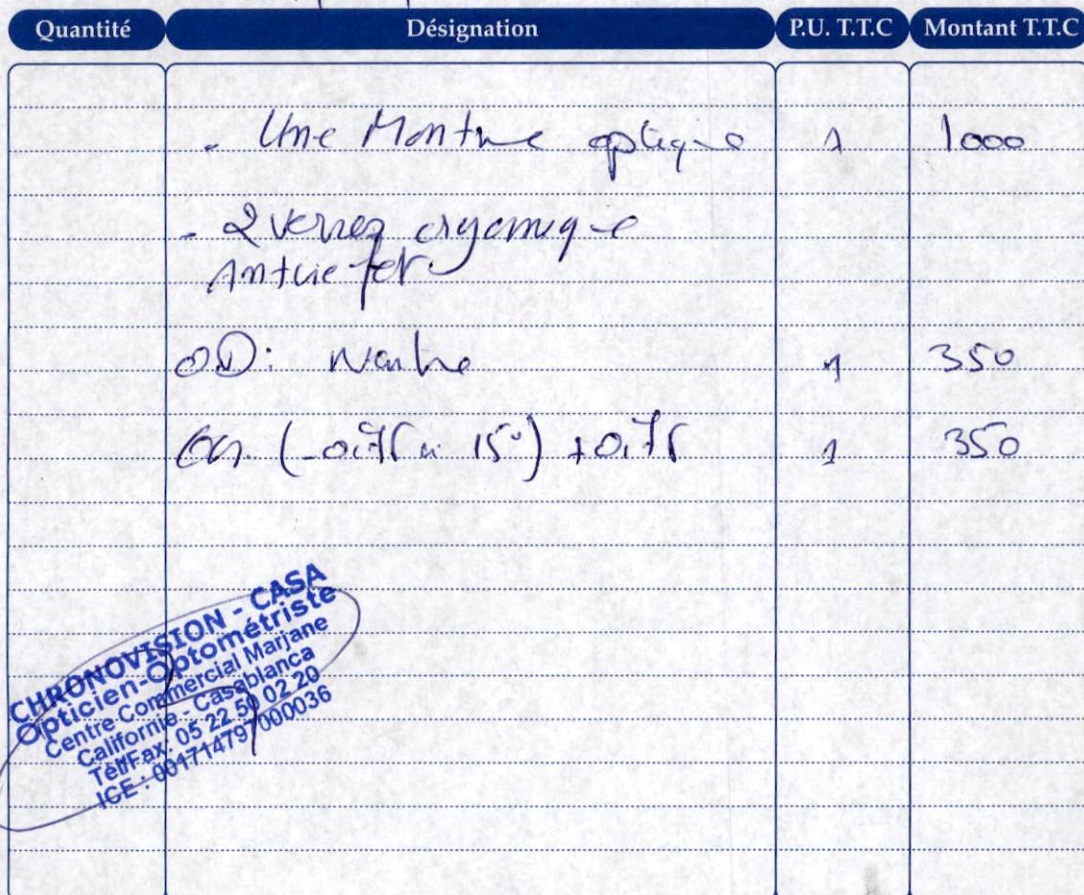 Quantité Désignation P.U. T.T.C Montant T.T.C
- Une Monture optique 1 1000
- 2 verres organique
Antireflet
OD: Neutre 1 350
OG. (-0,75 à 15°) +0,75 1 350
CHRONOVISION - CASA
Opticien-Optométriste
Centre Commercial Marjane
Californie - Casablanca
Tél/Fax: 05 22 50 02 20
ICE : 001714797000036